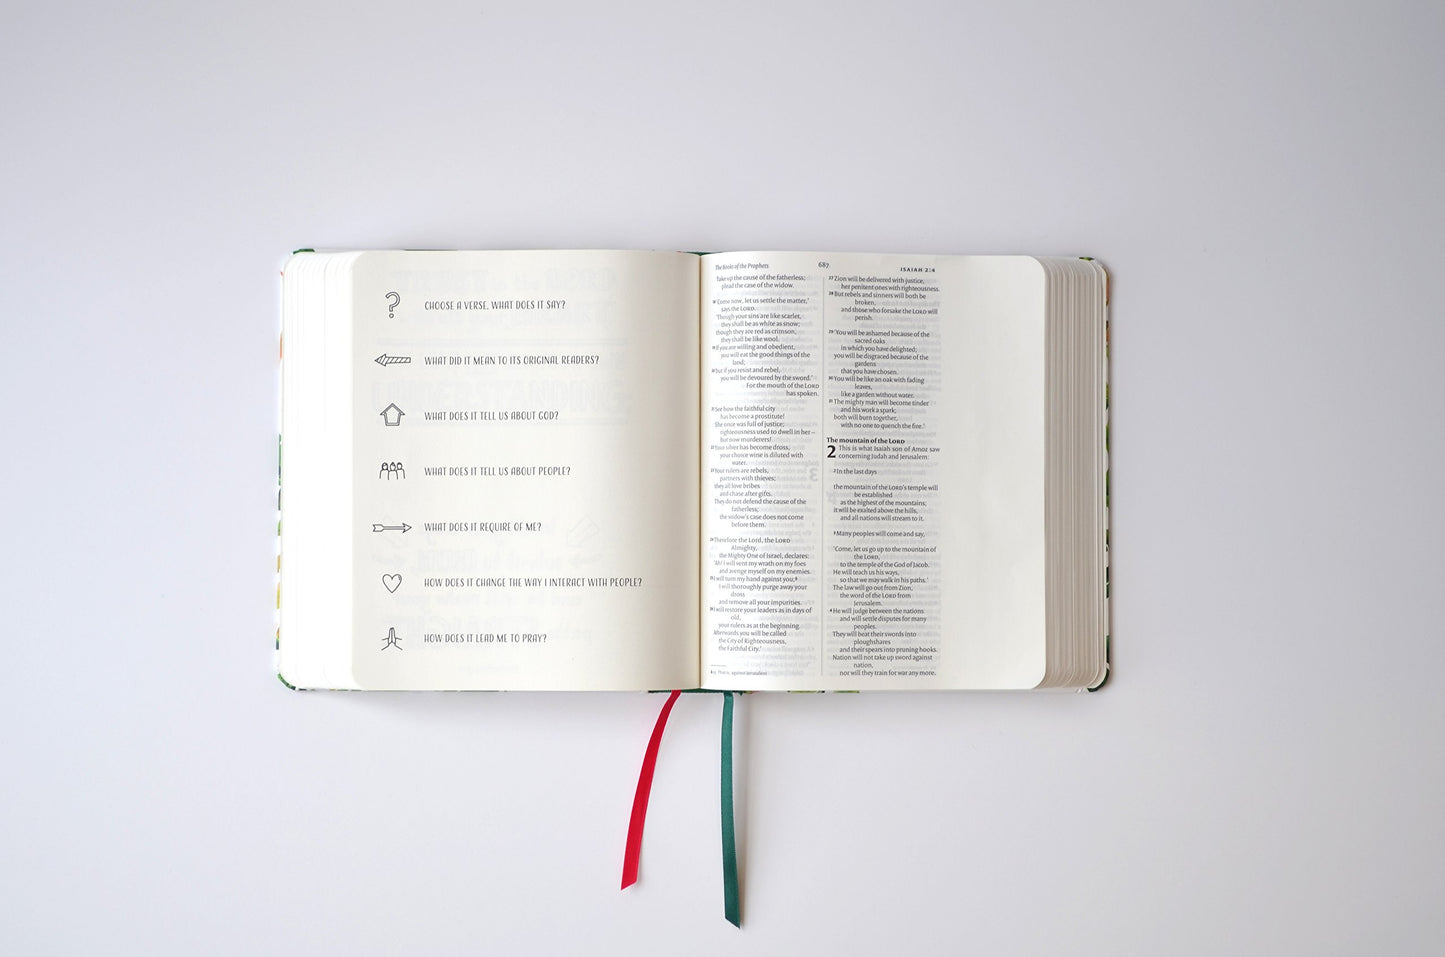 CHOOSE A VERSE. WHAT DOES IT SAY?
WHAT DID IT MEAN TO ITS ORIGINAL READERS?
WHAT DOES IT TELL US ABOUT GOD?
WHAT DOES IT TELL US ABOUT PEOPLE?
WHAT DOES IT REQUIRE OF ME?
HOW DOES IT CHANGE THE WAY I INTERACT WITH PEOPLE?
HOW DOES IT LEAD ME TO PRAY?
The Books of the Prophets 687 ISAIAH 2:4
Take up the cause of the fatherless;
plead the case of the widow.
18 'Come now, let us settle the matter,'
says the LORD.
'Though your sins are like scarlet,
they shall be as white as snow;
though they are red as crimson,
they shall be like wool.
19 If you are willing and obedient,
you will eat the good things of the
land;
20 but if you resist and rebel,
you will be devoured by the sword.'
For the mouth of the LORD
has spoken.
21 See how the faithful city
has become a prostitute!
She once was full of justice;
righteousness used to dwell in her –
but now murderers!
22 Your silver has become dross,
your choice wine is diluted with
water.
23 Your rulers are rebels,
partners with thieves;
they all love bribes
and chase after gifts.
They do not defend the cause of the
fatherless;
the widow's case does not come
before them.
24 Therefore the Lord, the LORD
Almighty,
the Mighty One of Israel, declares:
'Ah! I will vent my wrath on my foes
and avenge myself on my enemies.
25 I will turn my hand against you;
I will thoroughly purge away your
dross
and remove all your impurities.
26 I will restore your leaders as in days of
old,
your rulers as at the beginning.
Afterwards you will be called
the City of Righteousness,
the Faithful City.'
That is, against Jerusalem
27 Zion will be delivered with justice,
her penitent ones with righteousness.
28 But rebels and sinners will both be
broken,
and those who forsake the LORD will
perish.
29 'You will be ashamed because of the
sacred oaks
in which you have delighted;
you will be disgraced because of the
gardens
that you have chosen.
30 You will be like an oak with fading
leaves,
like a garden without water.
31 The mighty man will become tinder
and his work a spark;
both will burn together,
with no one to quench the fire.'
The mountain of the LORD
2 This is what Isaiah son of Amoz saw
concerning Judah and Jerusalem:
2 In the last days
the mountain of the LORD's temple will
be established
as the highest of the mountains;
it will be exalted above the hills,
and all nations will stream to it.
3 Many peoples will come and say,
'Come, let us go up to the mountain of
the LORD,
to the temple of the God of Jacob.
He will teach us his ways,
so that we may walk in his paths.'
The law will go out from Zion,
the word of the LORD from
Jerusalem.
4 He will judge between the nations
and will settle disputes for many
peoples.
They will beat their swords into
ploughshares
and their spears into pruning hooks.
Nation will not take up sword against
nation,
nor will they train for war any more.